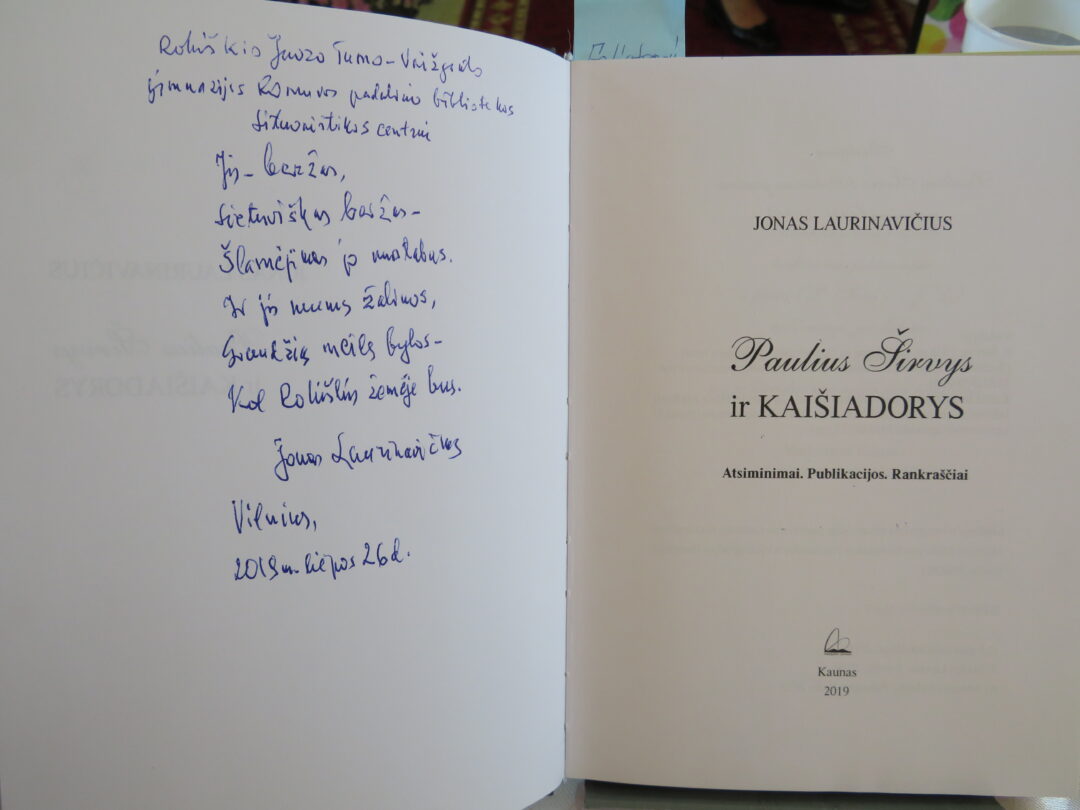 Rokiškio Juozo Tumo-Vaižganto
gimnazijos Romuvos padalinio bibliotekos
lituanistikos centrui
Jis - beržas,
Lietuviškas beržas -
Šlamėjimas jo
Ir jis mums žaliuos,
Graudžią meilę bylos -
Kol Rokiškis žemėje bus.
Jonas Laurinavičius
Vilnius,
2019 m. liepos 26 d.
JONAS LAURINAVIČIUS
Paulius Širvys
ir KAIŠIADORYS
Atsiminimai. Publikacijos. Rankraščiai
Kaunas
2019